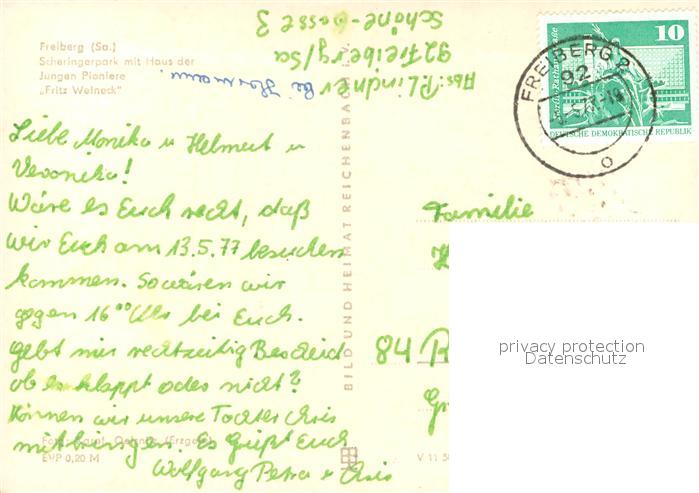 Freiberg (Sa.)
Scheringerpark mit Haus der
Jungen Pioniere
„Fritz Weineck"
Abs: P. Lindner bei
92 Freiberg/Sa
Schöne-Gasse 3
10
Berlin, Rathausstraße
DEUTSCHE DEMOKRATISCHE REPUBLIK
FREIBERG 2
92
Liebe Monika u Helmut u
Veronika!
Wäre es Euch recht, daß
wir Euch am 13.5.77 besuchen
kommen. So wären wir
gegen 16⁰⁰ Uhr bei Euch.
gebt mir rechtzeitig Bescheid
ob es klappt oder nicht?
Können wir unsere Tochter Iris
mitbringen. Es Grüßt Euch
Wolfgang Petra u Iris
Foto: Oelsnitz (Erzgeb.)
EVP 0,20 M
BILD UND HEIMAT REICHENBACH
V 11 50
Familie
84 R
G
privacy protection
Datenschutz